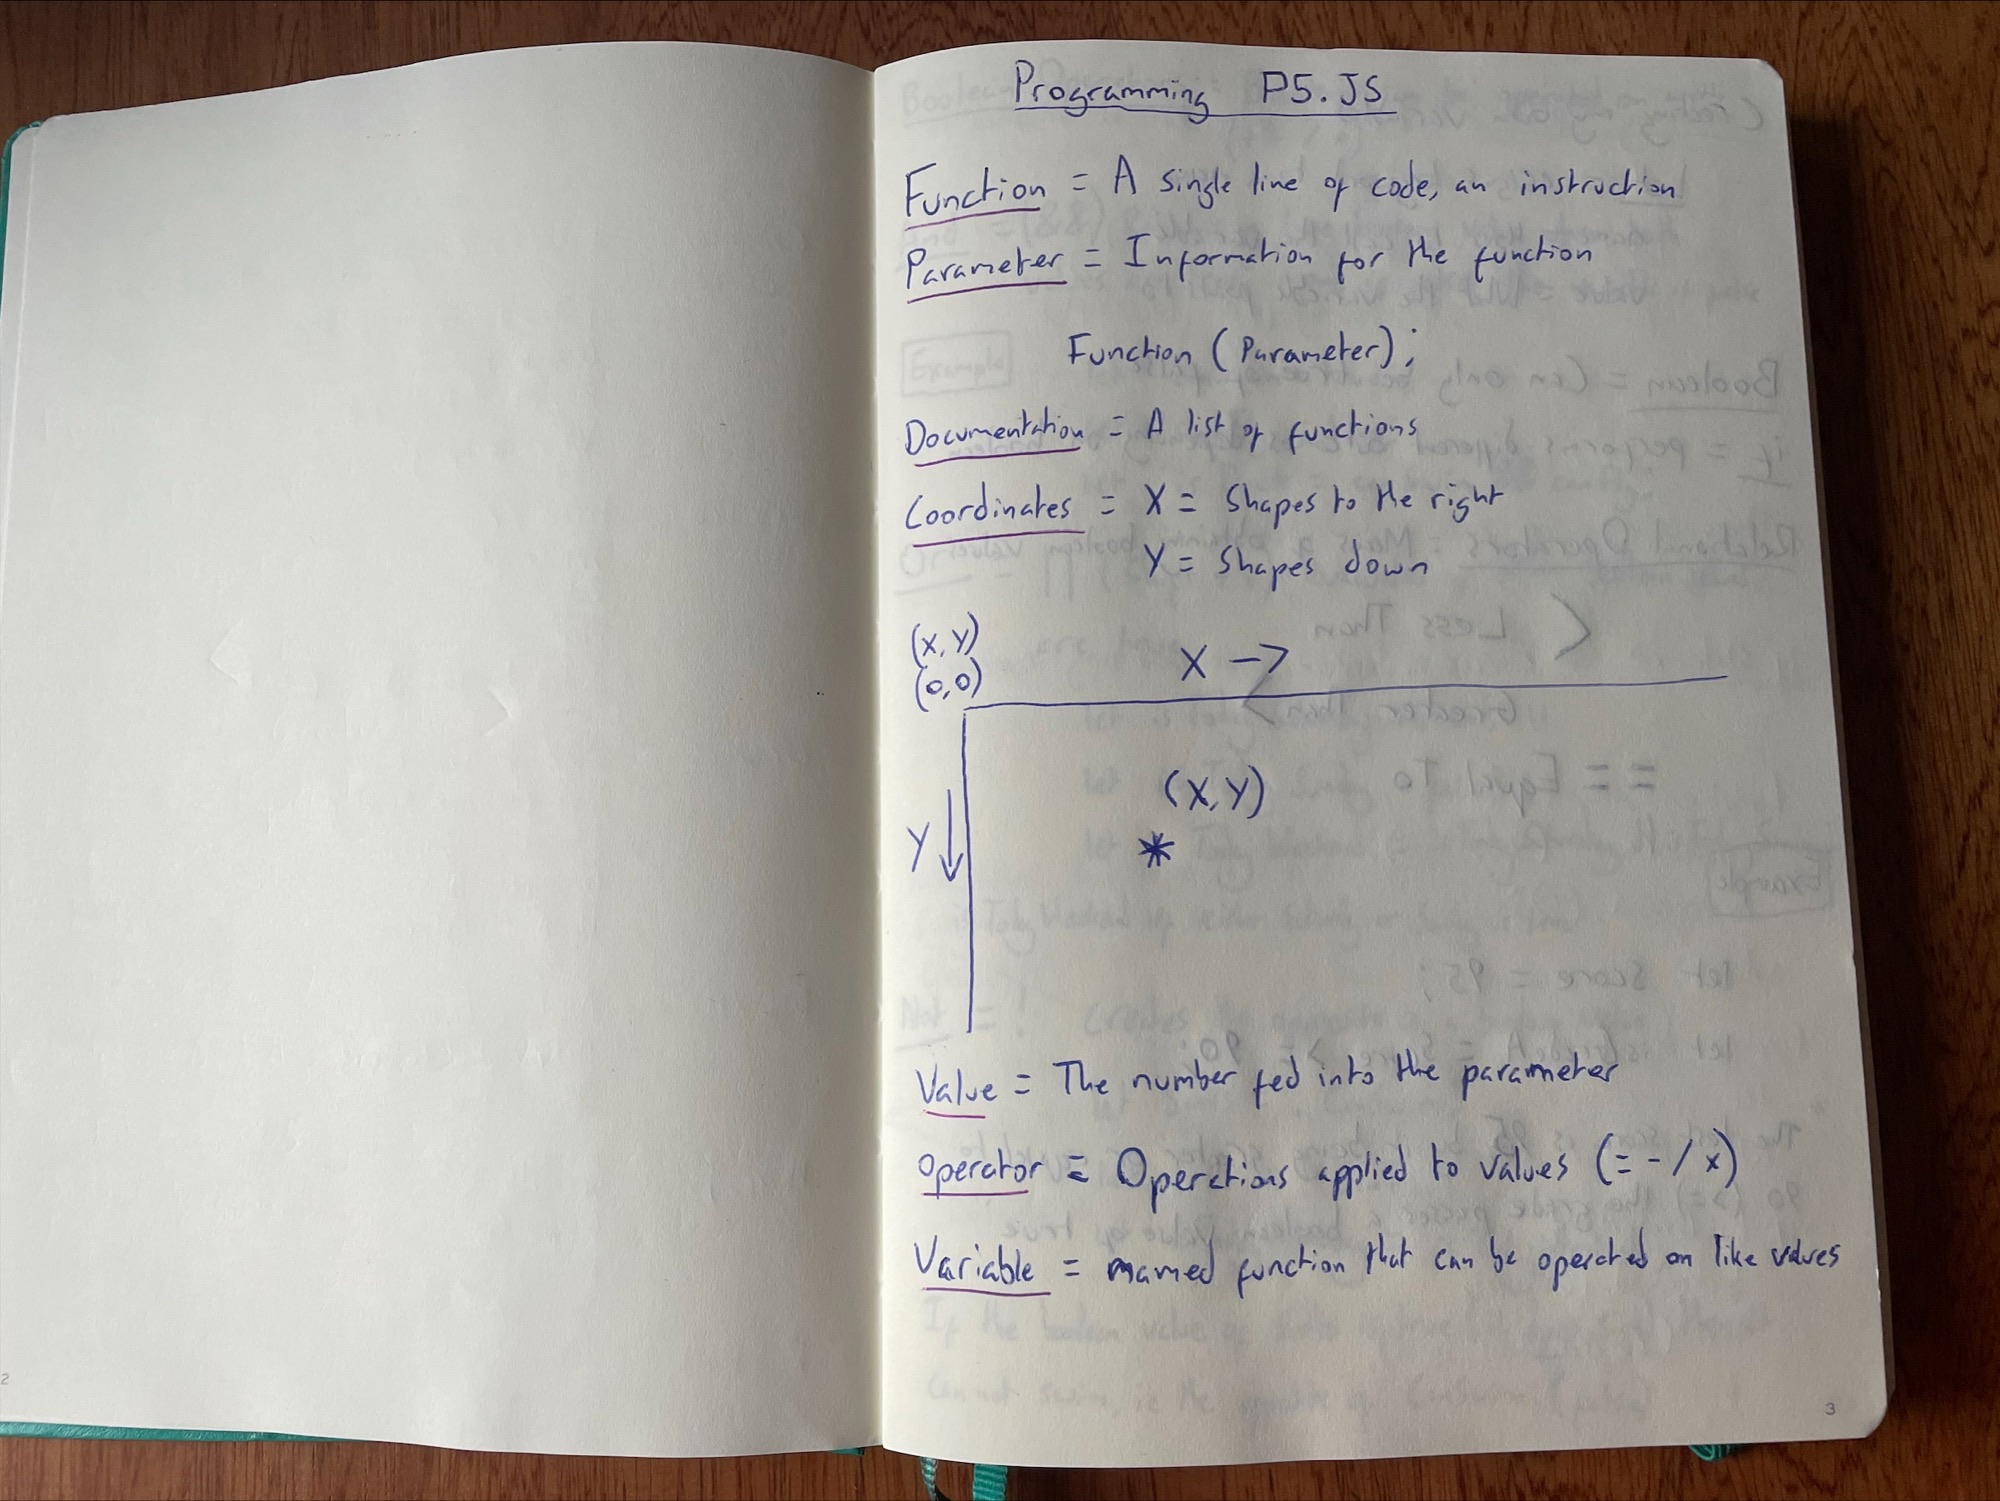 Programming P5.JS
Function = A single line of code, an instruction
Parameter = Information for the function
Function (Parameter);
Documentation = A list of functions
Coordinates = X = Shapes to the right
Y = Shapes down
(X, Y)
(0,0)
X ->
(X, Y)
*
Y
Value = The number fed into the parameter
operator = Operations applied to values (= - / x)
Variable = named function that can be operated on like values
2
3